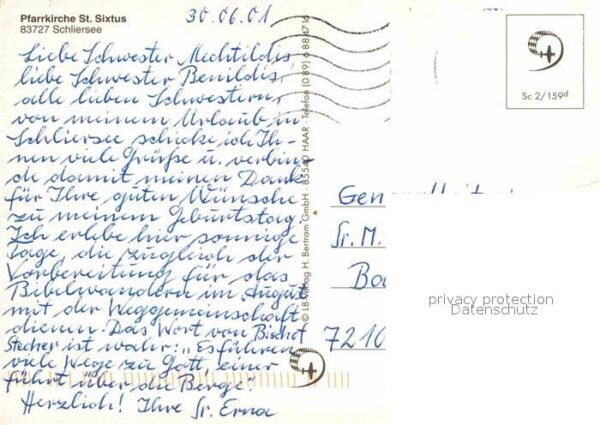 Pfarrkirche St. Sixtus
83727 Schliersee
30.06.01
Liebe Schwester Mechtildis,
liebe Schwester Benildis,
alle lieben Schwestern,
von meinem Urlaub in
Schliersee schicke ich Ih-
nen viele Grüße u. verbin-
de damit meinen Dank
für Ihre guten Wünsche
zu meinem Geburtstag.
Ich erlebe hier sonnige
Tage, die zugleich der
Vorbereitung für das
Bibelwandern im August
mit der Weggemeinschaft
dienen. Das Wort von Bischof
Stecher ist wahr: „Es führen
viele Wege zu Gott, einer
führt über die Berge."
Herzlich! Ihre Sr. Erna
© LB-Verlag H. Bertram GmbH · 85540 HAAR · Telefon (0 89)
Sc 2/159d
Sr. M.
7210
privacy protection
Datenschutz